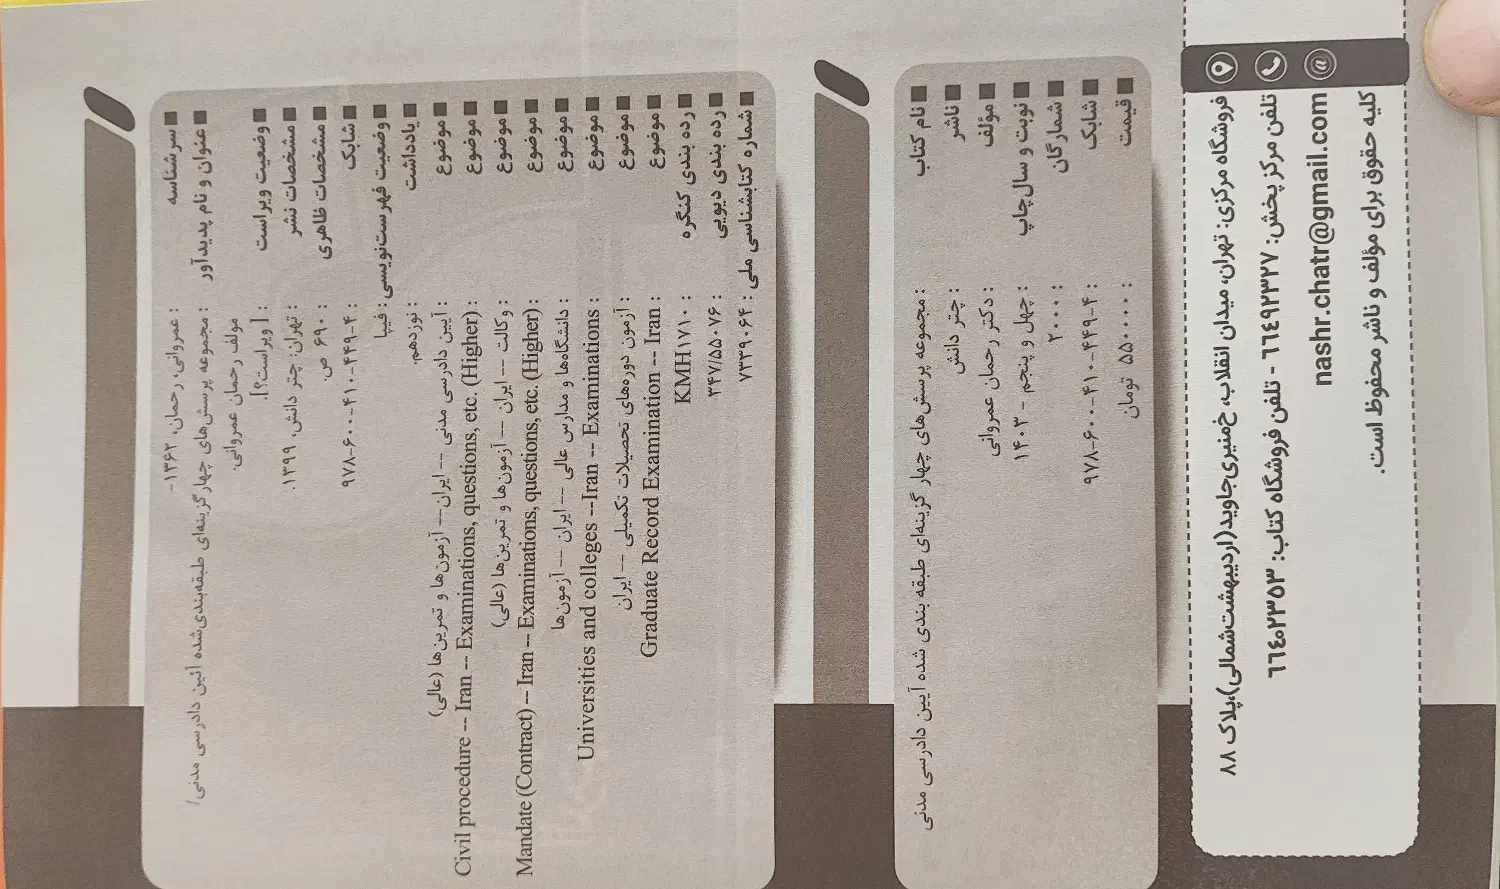 سرشناسه : عمروانی، رحمان، ۱۳۶۲ -
عنوان و نام پدیدآور : مجموعه پرسش‌های چهارگزینه‌ای طبقه‌بندی‌شده آئین دادرسی مدنی/
مولف رحمان عمروانی.
وضعیت ویراست : [ ویراست؟].
مشخصات نشر : تهران: چتر دانش، ۱۳۹۹.
مشخصات ظاهری : ۶۹۰ ص.
شابک : ۹۷۸-۶۰۰-۴۱۰-۴۴۹-۴
وضعیت فهرست‌نویسی : فیپا
یادداشت : نوزدهم.
موضوع : آیین دادرسی مدنی -- ایران -- آزمون‌ها و تمرین‌ها (عالی)
موضوع : Civil procedure -- Iran -- Examinations, questions, etc. (Higher)
موضوع : وکالت -- ایران -- آزمون‌ها و تمرین‌ها (عالی)
موضوع : Mandate (Contract) -- Iran -- Examinations, questions, etc. (Higher)
موضوع : دانشگاه‌ها و مدارس عالی -- ایران -- آزمون‌ها
موضوع : Universities and colleges --Iran -- Examinations
موضوع : آزمون دوره‌های تحصیلات تکمیلی -- ایران
موضوع : Graduate Record Examination -- Iran
رده بندی کنگره : KMH۱۷۱۰
رده بندی دیویی : ۳۴۷/۵۵۰۷۶
شماره کتابشناسی ملی : ۷۳۳۹۰۶۴
نام کتاب : مجموعه پرسش‌های چهار گزینه‌ای طبقه بندی شده آیین دادرسی مدنی
ناشر : چتر دانش
مؤلف : دکتر رحمان عمروانی
نوبت و سال چاپ : چهل و پنجم - ۱۴۰۳
شمارگان : ۲۰۰۰
شابک : ۹۷۸-۶۰۰-۴۱۰-۴۴۹-۴
قیمت : ۵۵۰۰۰۰ تومان
فروشگاه مرکزی: تهران، میدان انقلاب، خ‌منیری‌جاوید(اردیبهشت‌شمالی)،پلاک ۸۸
تلفن مرکز پخش: ۶۶۴۹۲۳۲۷ - تلفن فروشگاه کتاب: ۶۶۴۰۲۳۵۳
nashr.chatr@gmail.com
کلیه حقوق برای مؤلف و ناشر محفوظ است.